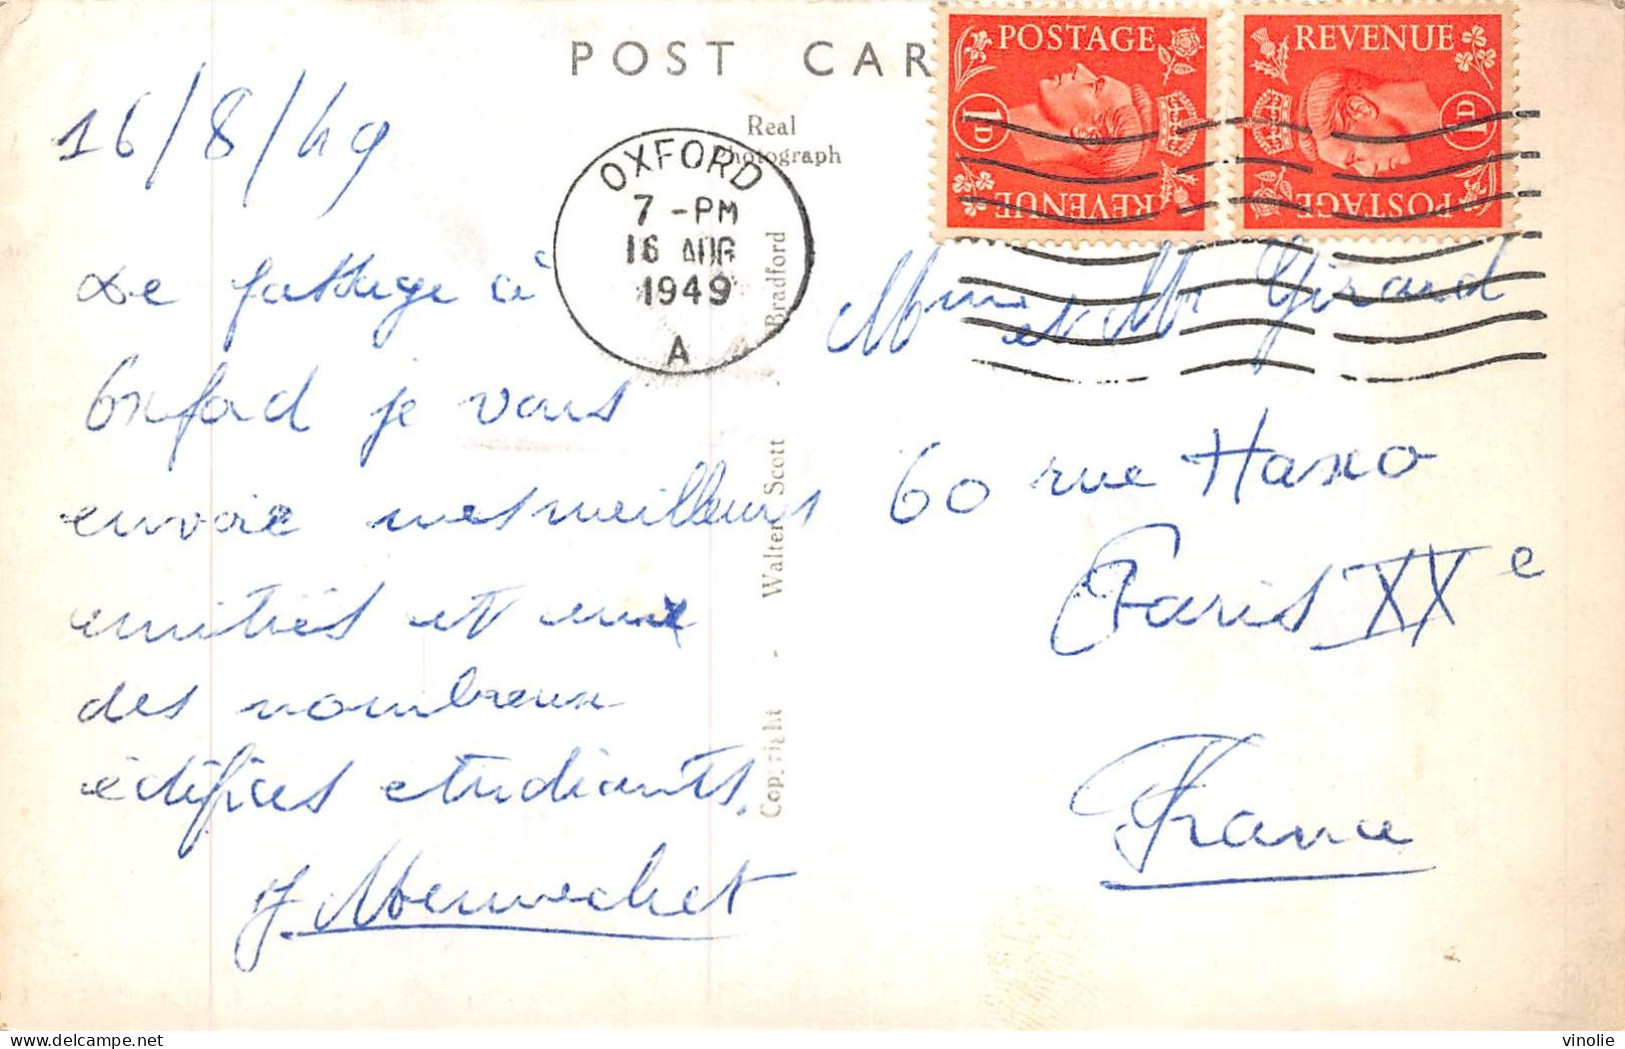 POST CAR
Real
Photograph
POSTAGE
1D
REVENUE
REVENUE
1D
POSTAGE
OXFORD
7 - PM
16 AUG
1949
A
16/8/49
De passage à
Oxford je vous
envoie mes meilleurs
amitiés et une
des nombreux
édifices etudiants.
Mme et Mr Girard
60 rue Haxo
Paris XXe
France
Copyright - Walter Scott - Bradford
vinolie